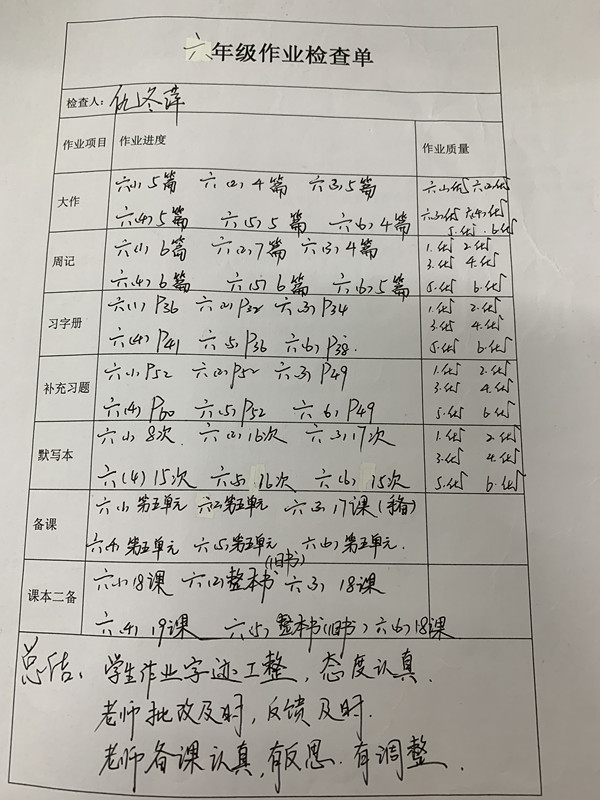 六年级作业检查单
检查人：仇冬萍
作业项目 作业进度 作业质量
大作 六(1)5篇 六(2)4篇 六(3)5篇 六(1)优 六(2)优
六(4)5篇 六(5)5篇 六(6)4篇 六(3)优 六(4)优
5.优 6.优
周记 六(1)6篇 六(2)7篇 六(3)4篇 1.优 2.优
3.优 4.优
六(4)6篇 六(5)6篇 六(6)5篇 5.优 6.优
习字册 六(1)P36 六(2)P32 六(3)P34 1.优 2.优
3.优 4.优
六(4)P41 六(5)P36 六(6)P38. 5.优 6.优
补充习题 六(1)P52 六(2)P52 六(3)P49 1.优 2.优
3.优 4.优
六(4)P60 六(5)P52 六(6)P49 5.优 6.优
默写本 六(1)8次. 六(2)16次 六(3)17次 1.优 2.优
3.优 4.优
六(4)15次 六(5)16次 六(6)15次 5.优 6.优
备课 六(1)第五单元 六(2)第五单元 六(3)17课
六(4)第五单元 六(5)第五单元 六(6)第五单元.
课本二备 六(1)18课 六(2)整本书(旧书) 六(3)18课
六(4)19课 六(5)整本书(旧书) 六(6)18课
总结：学生作业字迹工整，态度认真.
老师批改及时，反馈及时.
老师备课认真，有反思.有调整.